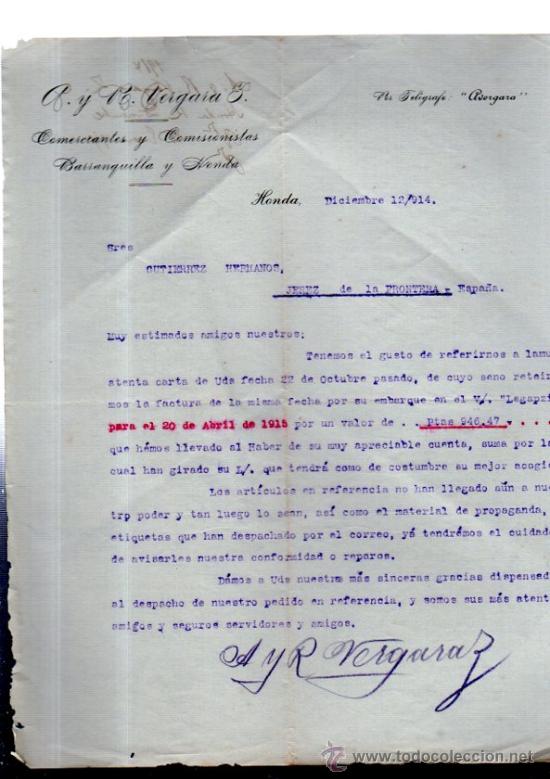 A. y R. Vergara Z.
Por Telégrafo: "Avergara"
Comerciantes y Comisionistas
Barranquilla y Honda
Honda, Diciembre 12/914.
Sres
GUTIERREZ HERMANOS,
JEREZ de la FRONTERA - España.
Muy estimados amigos nuestros;
Tenemos el gusto de referirnos a lamu
atenta carta de Uds fecha 22 de Octubre pasado, de cuyo seno reteir
mos la factura de la misma fecha por su embarque en el V/. "Legapzi
para el 20 de Abril de 1915 por un valor de . . Ptas 946.47 - . . . .
que hémos llevado al Haber de su muy apreciable cuenta, suma por la
cual han girado su L/. que tendrá como de costumbre su mejor acogid
Los artículos en referencia no han llegado aún a nue
trp poder y tan luego lo sean, así como el material de propaganda,
etiquetas que han despachado por el correo, yá tendrémos el cuidado
de avisarles nuestra conformidad o reparos.
Dámos a Uds nuestras más sinceras gracias dispensad
al despacho de nuestro pedido en referencia, y somos sus más atent
amigos y seguros servidores y amigos.
A y R Vergara Z
www.todocoleccion.net